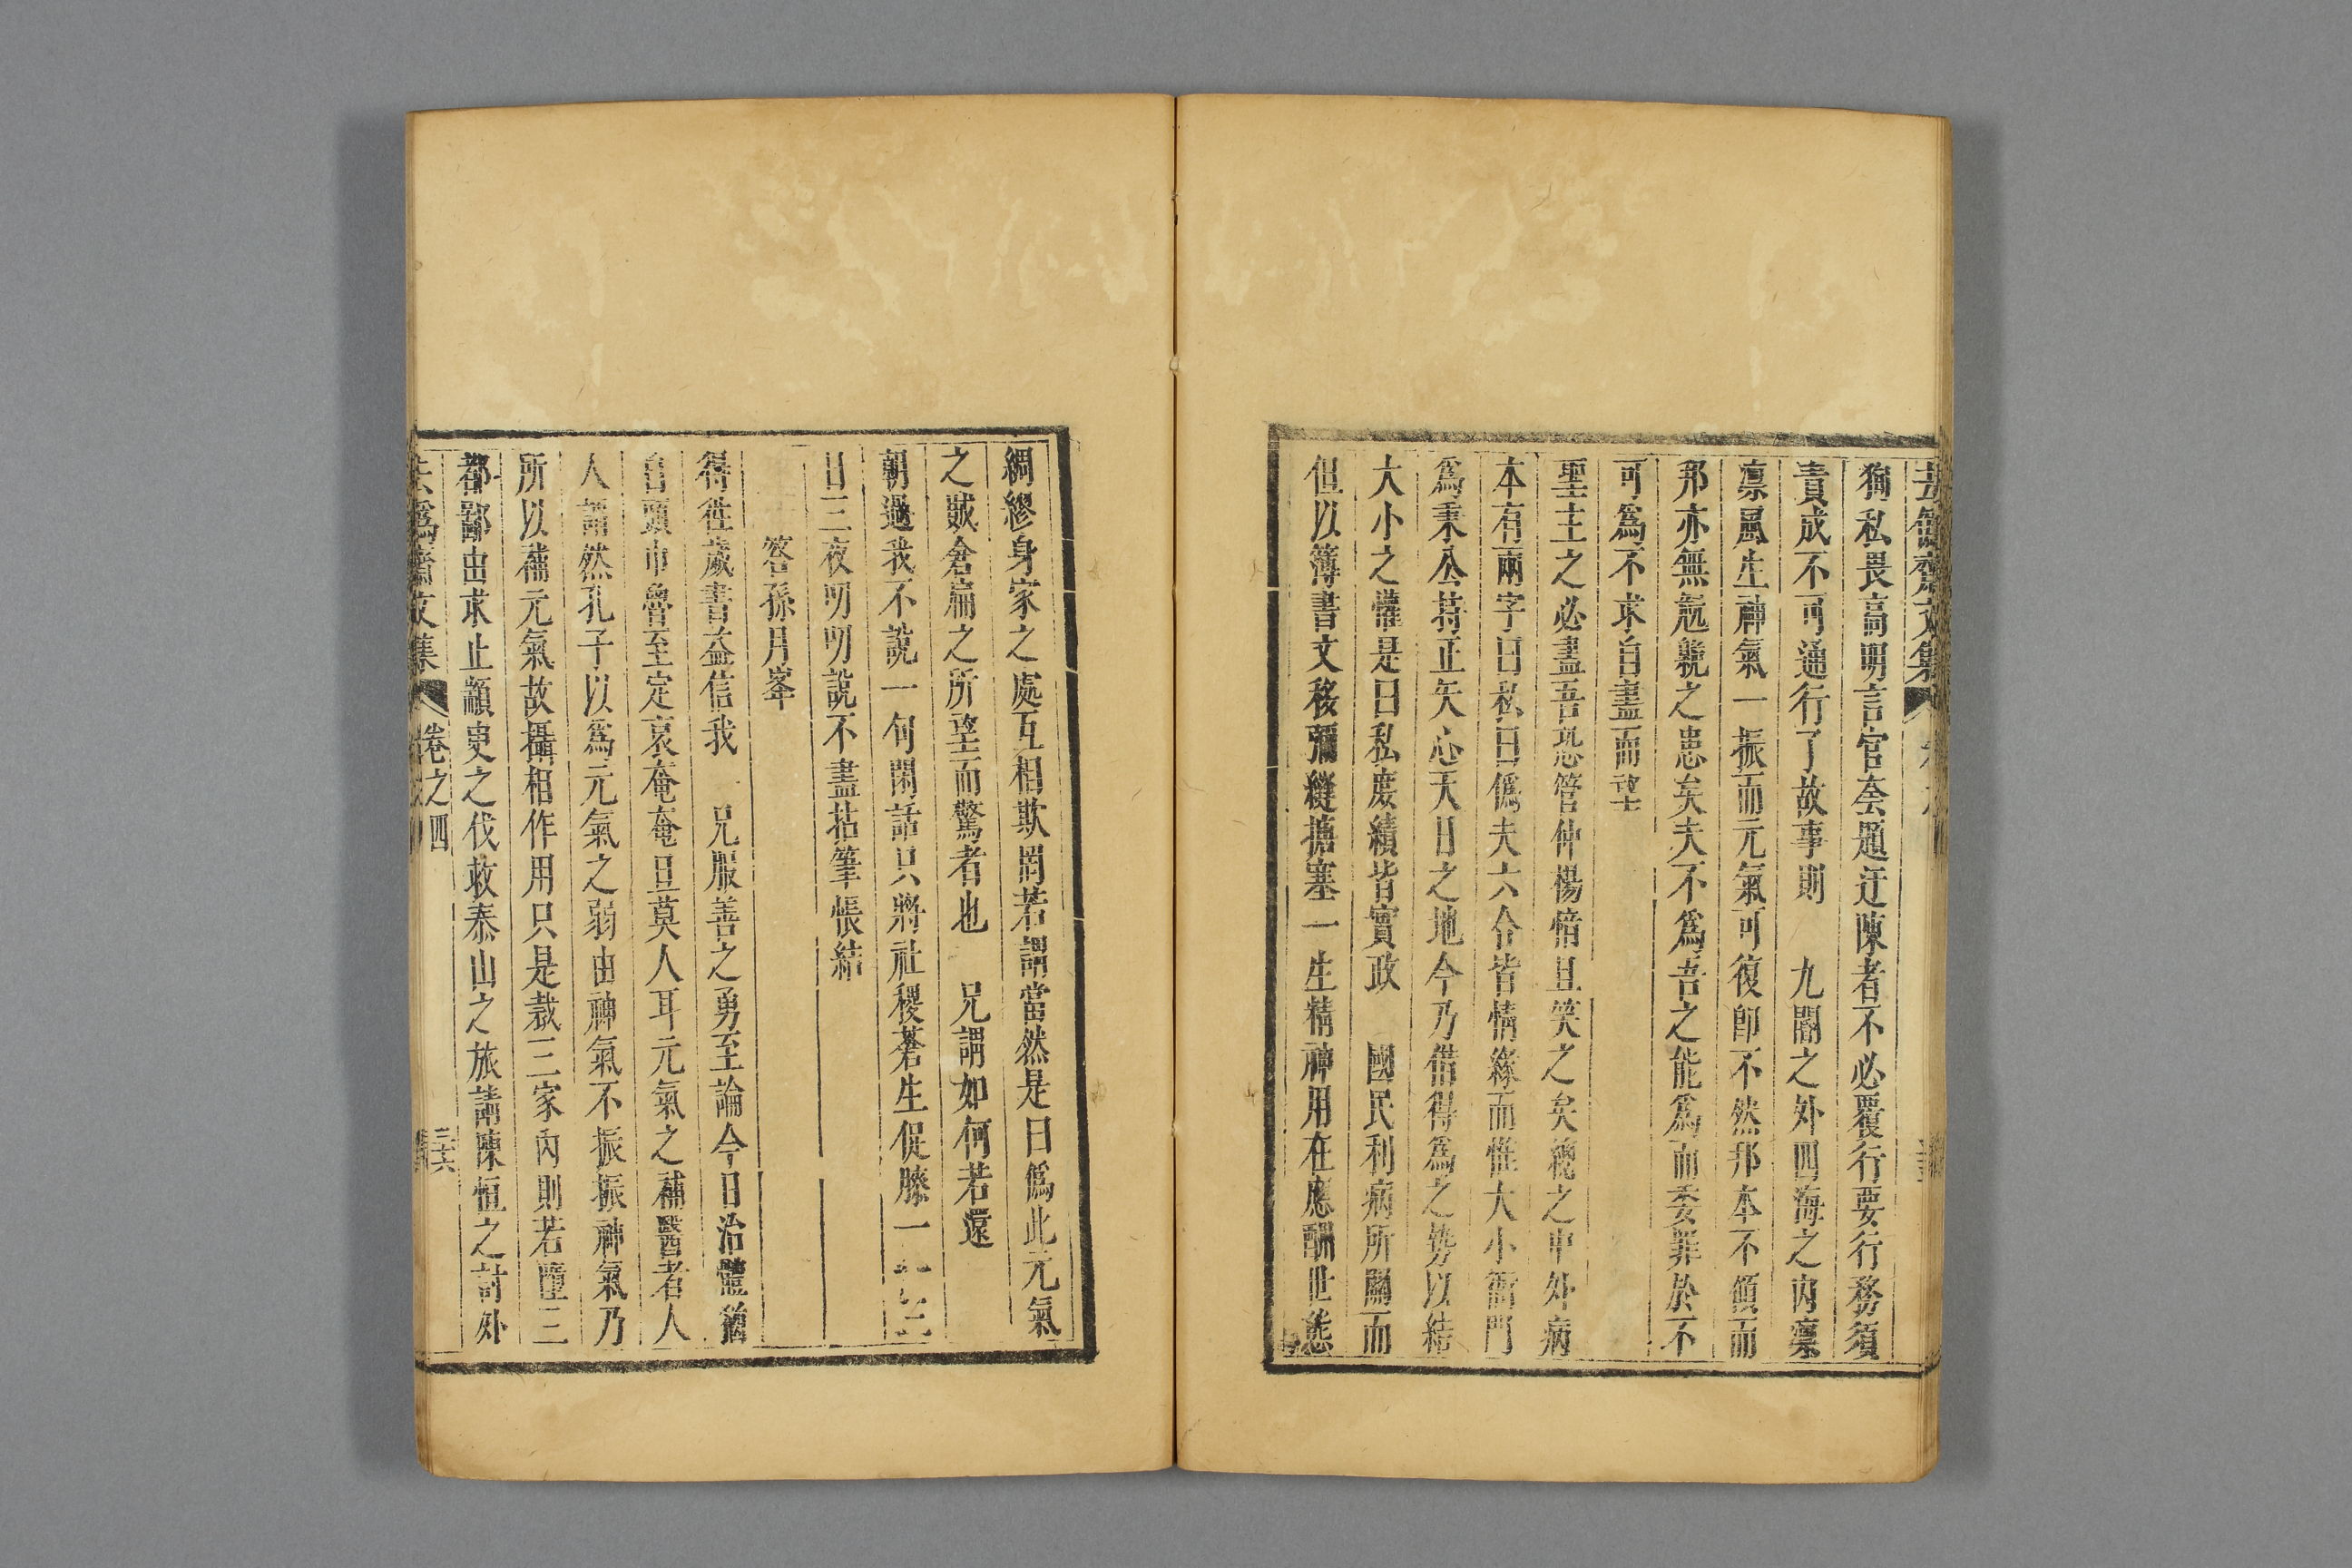 去僞齋文集
狥私畏高明言官奏題迂陳者不必覆行要行務須
責成不可通行了故事則　九閽之外四海之内凛
凛風生神氣一振而元氣可復卽不然邦本不傾而
邦亦無尫羸之患矣夫不爲吾之能爲而委罪於不
可爲不求自盡而望
聖主之必盡吾恐管仲楊愔且笑之矣總之中外病
本有兩字曰私曰僞夫六合皆情緣而惟大小衙門
爲秉公持正矢心天日之地今乃借得爲之勢以結
大小之懽是曰私庶績皆實政　國民利病所關而
但以簿書文移彌縫搪塞一生精神用在應酬世態
綢繆身家之處互相欺罔若謂當然是曰僞此元氣
之賊倉扁之所望而驚者也　兄謂如何若還
朝過我不說一句閑話只將社稷蒼生促膝一
日三夜叨叨說不盡拈筆悵結
答孫月峯
得徃歲書益信我　兄服善之勇至論今日治體猶
自頭巾魯至定哀奄奄旦莫人耳元氣之補醫者人
人謂然孔子以爲元氣之弱由神氣不振振神氣乃
所以補元氣故攝相作用只是裁三家內則若墮三
都鄙由求止顓臾之伐救泰山之旅請陳恒之討外
去僞齋文集　卷之四　三十六